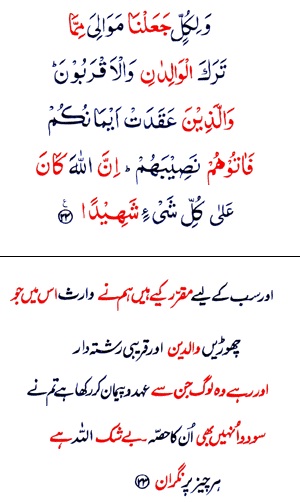 وَلِكُلٍّ جَعَلْنَا مَوَالِیَ مِمَّا
تَرَكَ الْوَالِدٰنِ وَالْاَقْرَبُوْنَ ؕ
وَالَّذِیْنَ عَقَدَتْ اَیْمَانُكُمْ
فَاٰتُوْهُمْ نَصِیْبَهُمْ ؕ اِنَّ اللّٰهَ كَانَ
عَلٰی كُلِّ شَیْءٍ شَهِیْدًا ﴿۳۳﴾ ع
اور سب کے لیے مقرر کیے ہیں ہم نے وارث اس میں جو
چھوڑیں والدین اور قریبی رشتہ دار
اور رہے وہ لوگ جن سے عہد و پیمان کر رکھا ہے تم نے
سو دو اُنہیں بھی اُن کا حصّہ ۔ بے شک اللہ ہے
ہر چیز پر نگران ﴿۳۳﴾